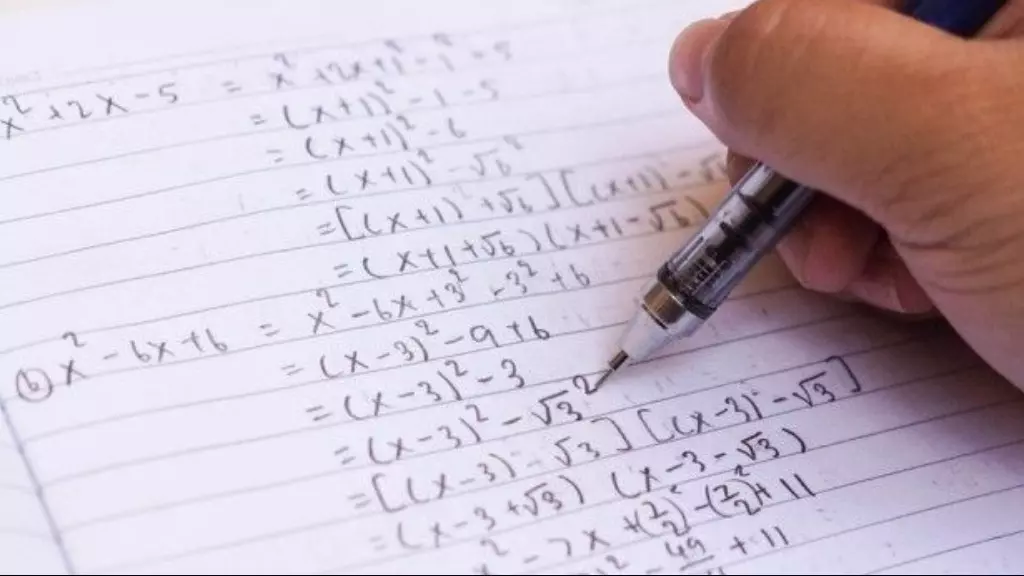 x² + 2x - 5 = x² + 2x + 1² - 1² - 5
= (x+1)² - 1 - 5
= (x+1)² - 6
= (x+1)² - √6²
= [(x+1) + √6] [(x+1) - √6
= (x+1+√6) (x+1-√6)
(b) x² - 6x + 6 = x² - 6x + 3² - 3² + 6
= (x-3)² - 9 + 6
= (x-3)² - 3
= (x-3)² - √3²
= [(x-3) - √3] [(x-3) - √3]
= (x-3+√3) (x-3-√3)
x² - 7x + (7/2)² - (7/2)² + 11
)² - 49/4 + 11